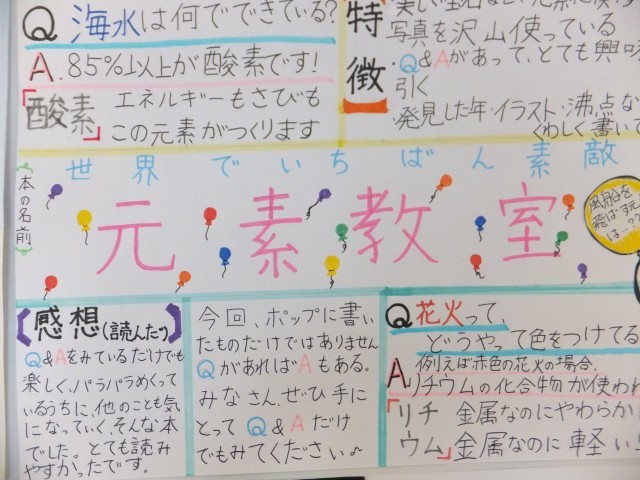 Q 海水は何でできている?
A.85%以上が酸素です!
「酸素」
エネルギーもさびも
この元素がつくります
特徴
写真を沢山使っている
・Q&Aがあって、とても興味
引く
・発見した年・イラスト・沸点な
くわしく書いて
世界でいちばん素敵
本の名前
元素教室
風船を
飛ばす元
は…?
【感想(読んだ)】
Q&Aをみているだけでも
楽しく、パラパラめくって
いるうちに、他のことも気
になっていく、そんな本
でした。とても読み
やすかったです。
今回、ポップに書い
たものだけではありません
QがあればAもある。
みなさん、ぜひ手に
とって Q&Aだけ
でもみてください〜
Q 花火って、
どうやって色をつけてる
A 例えば赤色の花火の場合、
リチウムの化合物が使われ
「リチウム」
金属なのにやわらかい
金属なのに軽い